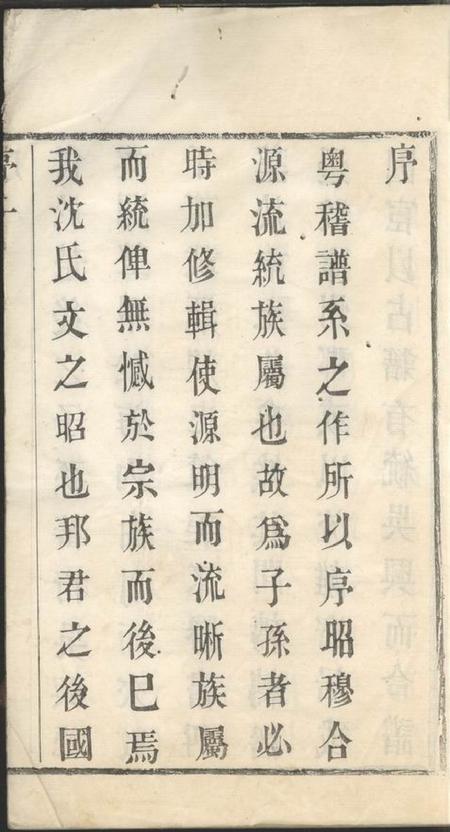 序
粤稽譜系之作所以序昭穆合
源流統族屬也故爲子孫者必
時加修輯使源明而流晰族屬
而統俾無憾於宗族而後巳焉
我沈氏文之昭也邦君之後國
序